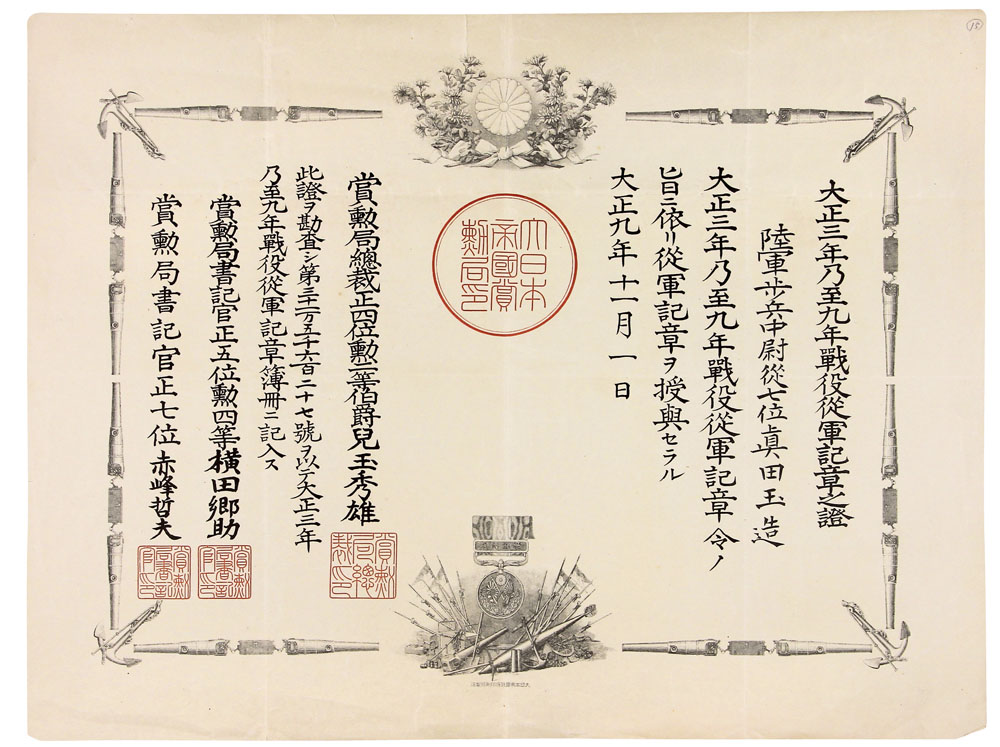 大正三年乃至九年戰役從軍記章之證
陸軍步兵中尉從七位眞田玉造
大正三年乃至九年戰役從軍記章令ノ
旨ニ依リ從軍記章ヲ授與セラル
大正九年十一月一日
大日本
帝國賞
勲局印
賞勲局總裁正四位勲二等伯爵兒玉秀雄
此證ヲ勘査シ第三十二万五千六百二十七號ヲ以テ大正三年
乃至九年戰役從軍記章簿冊ニ記入ス
賞勲局書記官正五位勲四等橫田鄉助
賞勲局書記官正七位赤峰哲夫
賞勲
局總
裁印
賞勲
局書記
官印
賞勲
局書記
官印
15